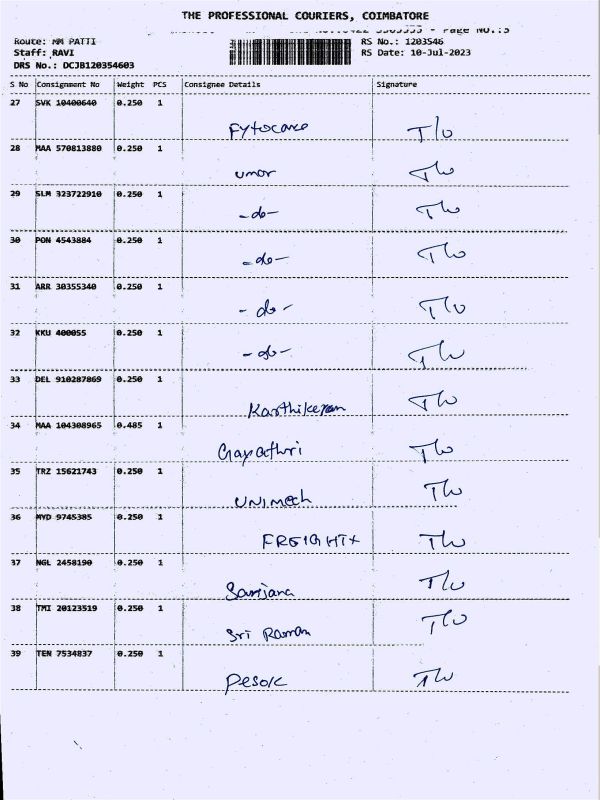 THE PROFESSIONAL COURIERS, COIMBATORE
Page NO.:3
Route: MM PATTI RS No.: 1203546
Staff: RAVI RS Date: 10-Jul-2023
DRS No.: DCJB120354603
S No Consignment No Weight PCS Consignee Details Signature
27 SVK 10400640 0.250 1
Fytocare T/w
28 MAA 570813880 0.250 1
umor T/w
29 SLM 323722910 0.250 1
-do- T/w
30 PON 4543884 0.250 1
-do- T/w
31 ARR 30355340 0.250 1
-do- T/w
32 KKU 400055 0.250 1
-do- T/w
33 DEL 910287869 0.250 1
Karthikeyan T/w
34 MAA 104308965 0.485 1
Gayathri T/w
35 TRZ 15621743 0.250 1
UNIMech T/w
36 MYD 9745385 0.250 1
FREIGHT+ T/w
37 NGL 2458190 0.250 1
Sanjana T/w
38 TMI 20123519 0.250 1
Sri Raman T/w
39 TEN 7534837 0.250 1
Pesok T/w